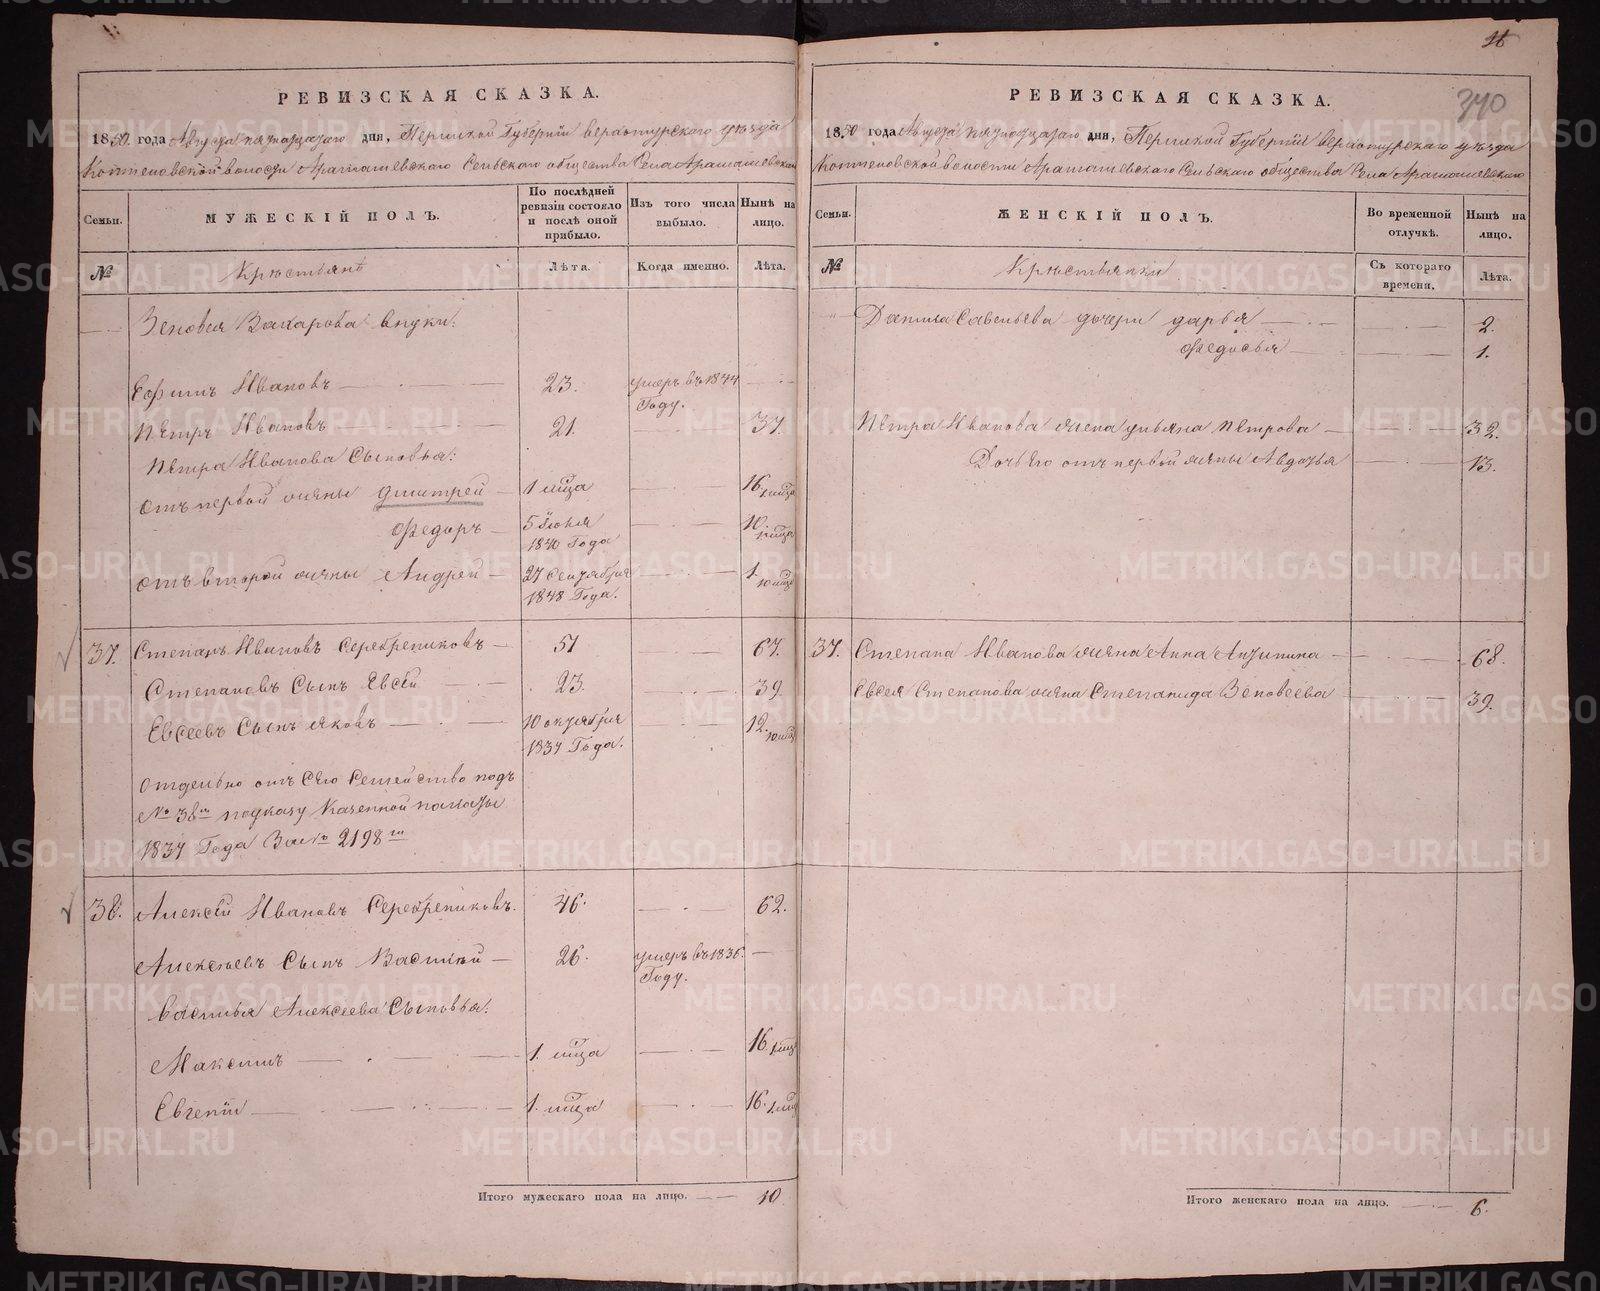 26
340
РЕВИЗСКАЯ СКАЗКА.
1850. года Августа пятнадцатаго дня, Пермской Губернiи верхотурскаго уѣзда
Коптеловской волости Арамашевскаго Сельскаго общества Села Арамашевскаго
Семьи.
МУЖЕСКIЙ ПОЛЪ.
По послѣдней ревизiи состояло и послѣ оной прибыло.
Изъ того числа выбыло.
Нынѣ на лицо.
№
Крестьянѣ
Лѣта.
Когда именно.
Лѣта.
Зеновея Захарова внуки:
Ефимъ Ивановъ 23. умеръ въ 1844 Году.
Пётръ Ивановъ 21. 37.
Петра Иванова Сыновья:
отъ первой жены Дмитрей 1 мѣсца 16. 1 мѣсца
Федоръ 5 Iюня 1840 Года 10. 1 мѣсца
отъ второй жены Андрей 27 Сентября 1848 Года. 1. 10 мѣсц
37. Степанъ Ивановъ Серебрениковъ 51 67.
Степановъ Сынъ Евсѣй 23. 39.
Евсеевъ Сынъ Яковъ 10 октября 1837 Года. 12. 10 мѣс
Отдельно отъ Сего Семейство подъ
№ 38м поуказу Казенной палаты
1837 Года За № 2198м
38. Алексѣй Ивановъ Серебрениковъ. 46. 62.
Алексѣевъ Сынъ Василiй 26. умеръ въ 1836. Году.
Василья Алексѣева Сыновья:
Максимъ 1. мѣсца 16. 1 мѣсц
Евгенiй 1. мѣсца 16. 1 мѣсц
Итого мужескаго пола на лицо. 10.
РЕВИЗСКАЯ СКАЗКА.
1850 года Августа пятнодцатаго дня, Пермской Губернiи верхотурскаго уѣзда
Коптеловской волости Арамашевскаго Сельскаго общества Села Арамашевскаго
Семьи.
ЖЕНСКIЙ ПОЛЪ.
Во временной отлучкѣ.
Нынѣ на лицо.
№
Крѣстьянки
Съ котораго времени.
Лѣта.
Данила Савельева дочери Дарья 2.
Федосья 1.
Пётра Иванова жена ульяна Петрова 32.
Дочь его отъ первой жены Авдотья 13.
37. Степана Иванова жена Анна Антипина 68.
Евсея Степанова жена Степанида Зеновеева 39.
Итого женскаго пола на лицо. 6.
METRIKI.GASO-URAL.RU